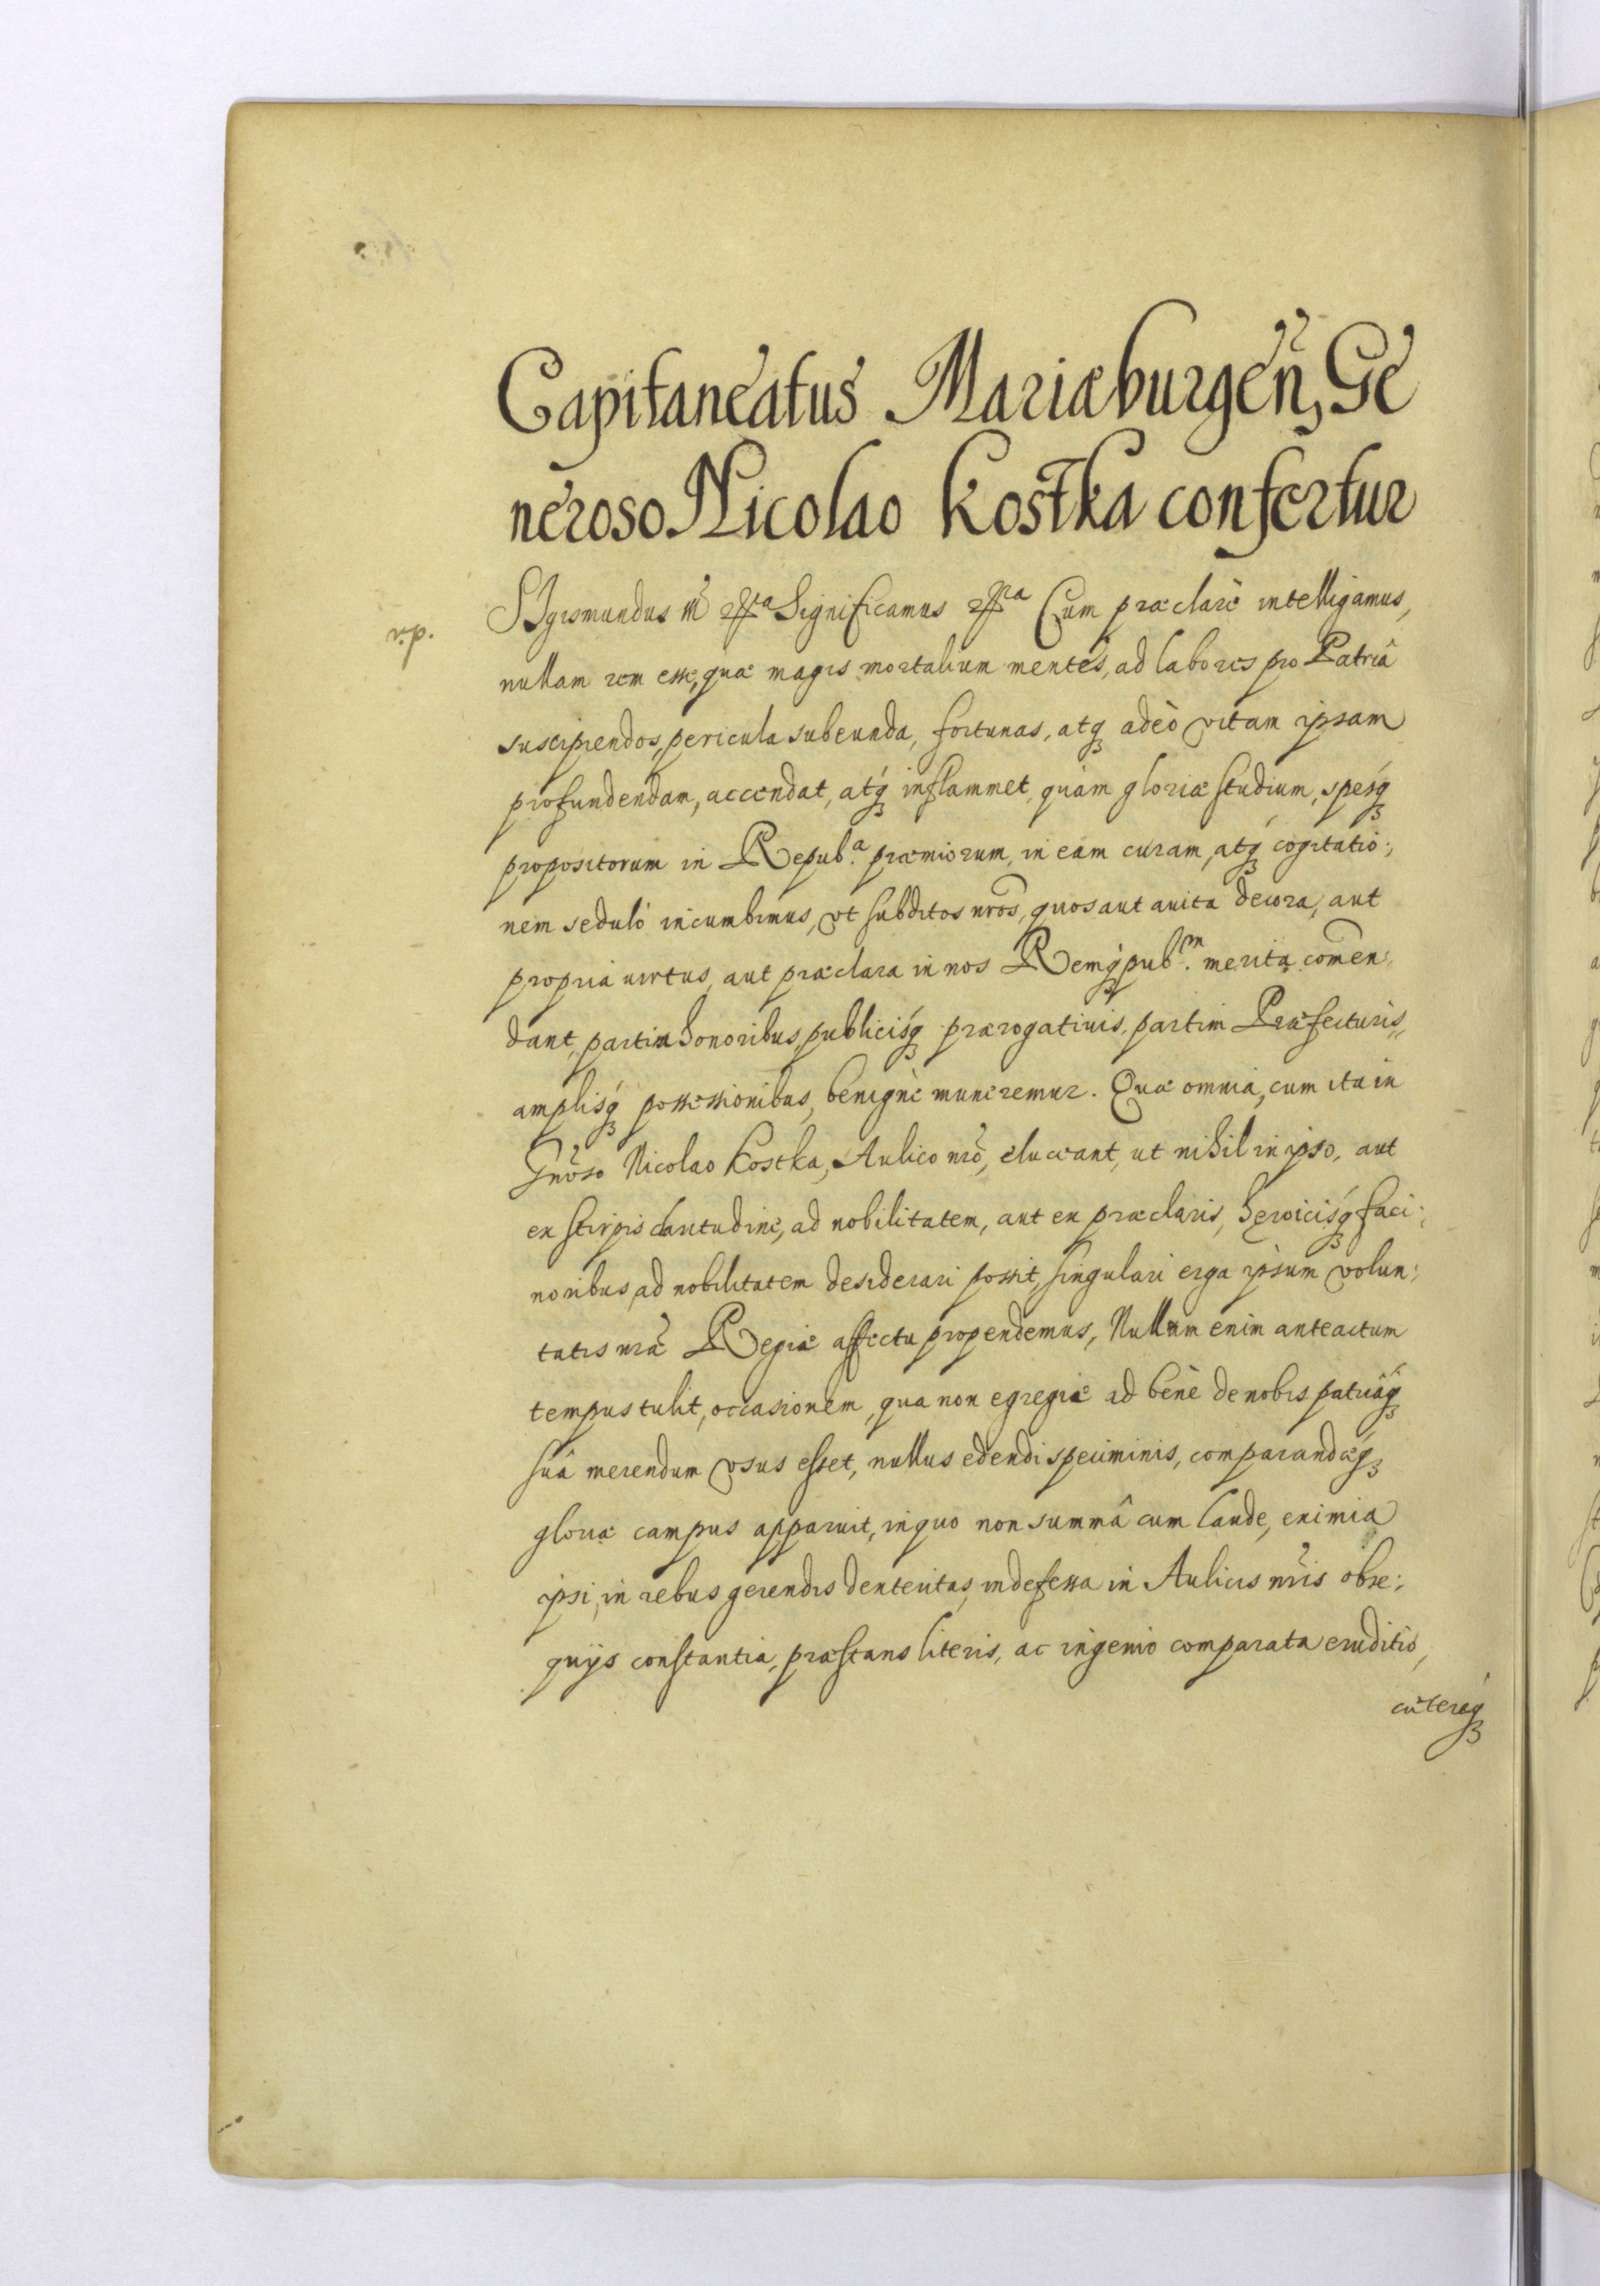 Capitaneatus Mariaeburgeñ, Ge
neroso Nicolao Kostka confertur
r.p.
SIgismundus III Significamus Cum praeclarè intelligamus,
nullam rem esse, quae magis mortalium mentes, ad labores pro Patriâ
suscipiendos, pericula subeunda, fortunas, atq adeò vitam ipsam
profundendam, accendat, atq inflammet, quàm gloriae studium, spesq
propositorum in Repub.a praemiorum, in eam curam, atq cogitatio:
nem sedulò incumbimus, vt subditos nros, quos aut auita decora, aut
propria virtus, aut praeclara in nos Remqpub.m merita comen:
dant, partim honoribus, publicisq praerogatiuis, partim Praefecturis,
amplisq possessionibus, benignè muneremur. Quae omnia, cum ita in
Gnoso Nicolao Kostka, Aulico nro, eluceant, ut nihil in ipso, aut
ex stirpis claritudine, ad nobilitatem, aut ex praeclaris, heroicisq faci:
noribus, ad nobilitatem desiderari possit, singulari erga ipsum volun:
tatis nrae Regiae affectu propendemus, Nullam enim anteactum
tempus tulit, occasionem, qua non egregiè ad benè de nobis patriâq
suâ merendum vsus esset, nullus edendi speciminis, comparandaeq
gloriae campus apparuit, in quo non summâ cum laude, eximia
ipsi, in rebus gerendis dexteritas, indefessa in Aulicis nris obse:
quijs constantia, praestans literis, ac ingenio comparata eruditio,
caeteraq